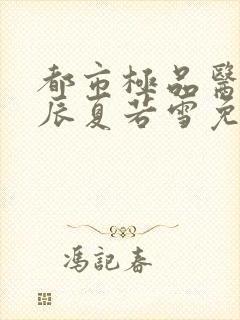 都市極品醫
辰夏若雪免
馮記春